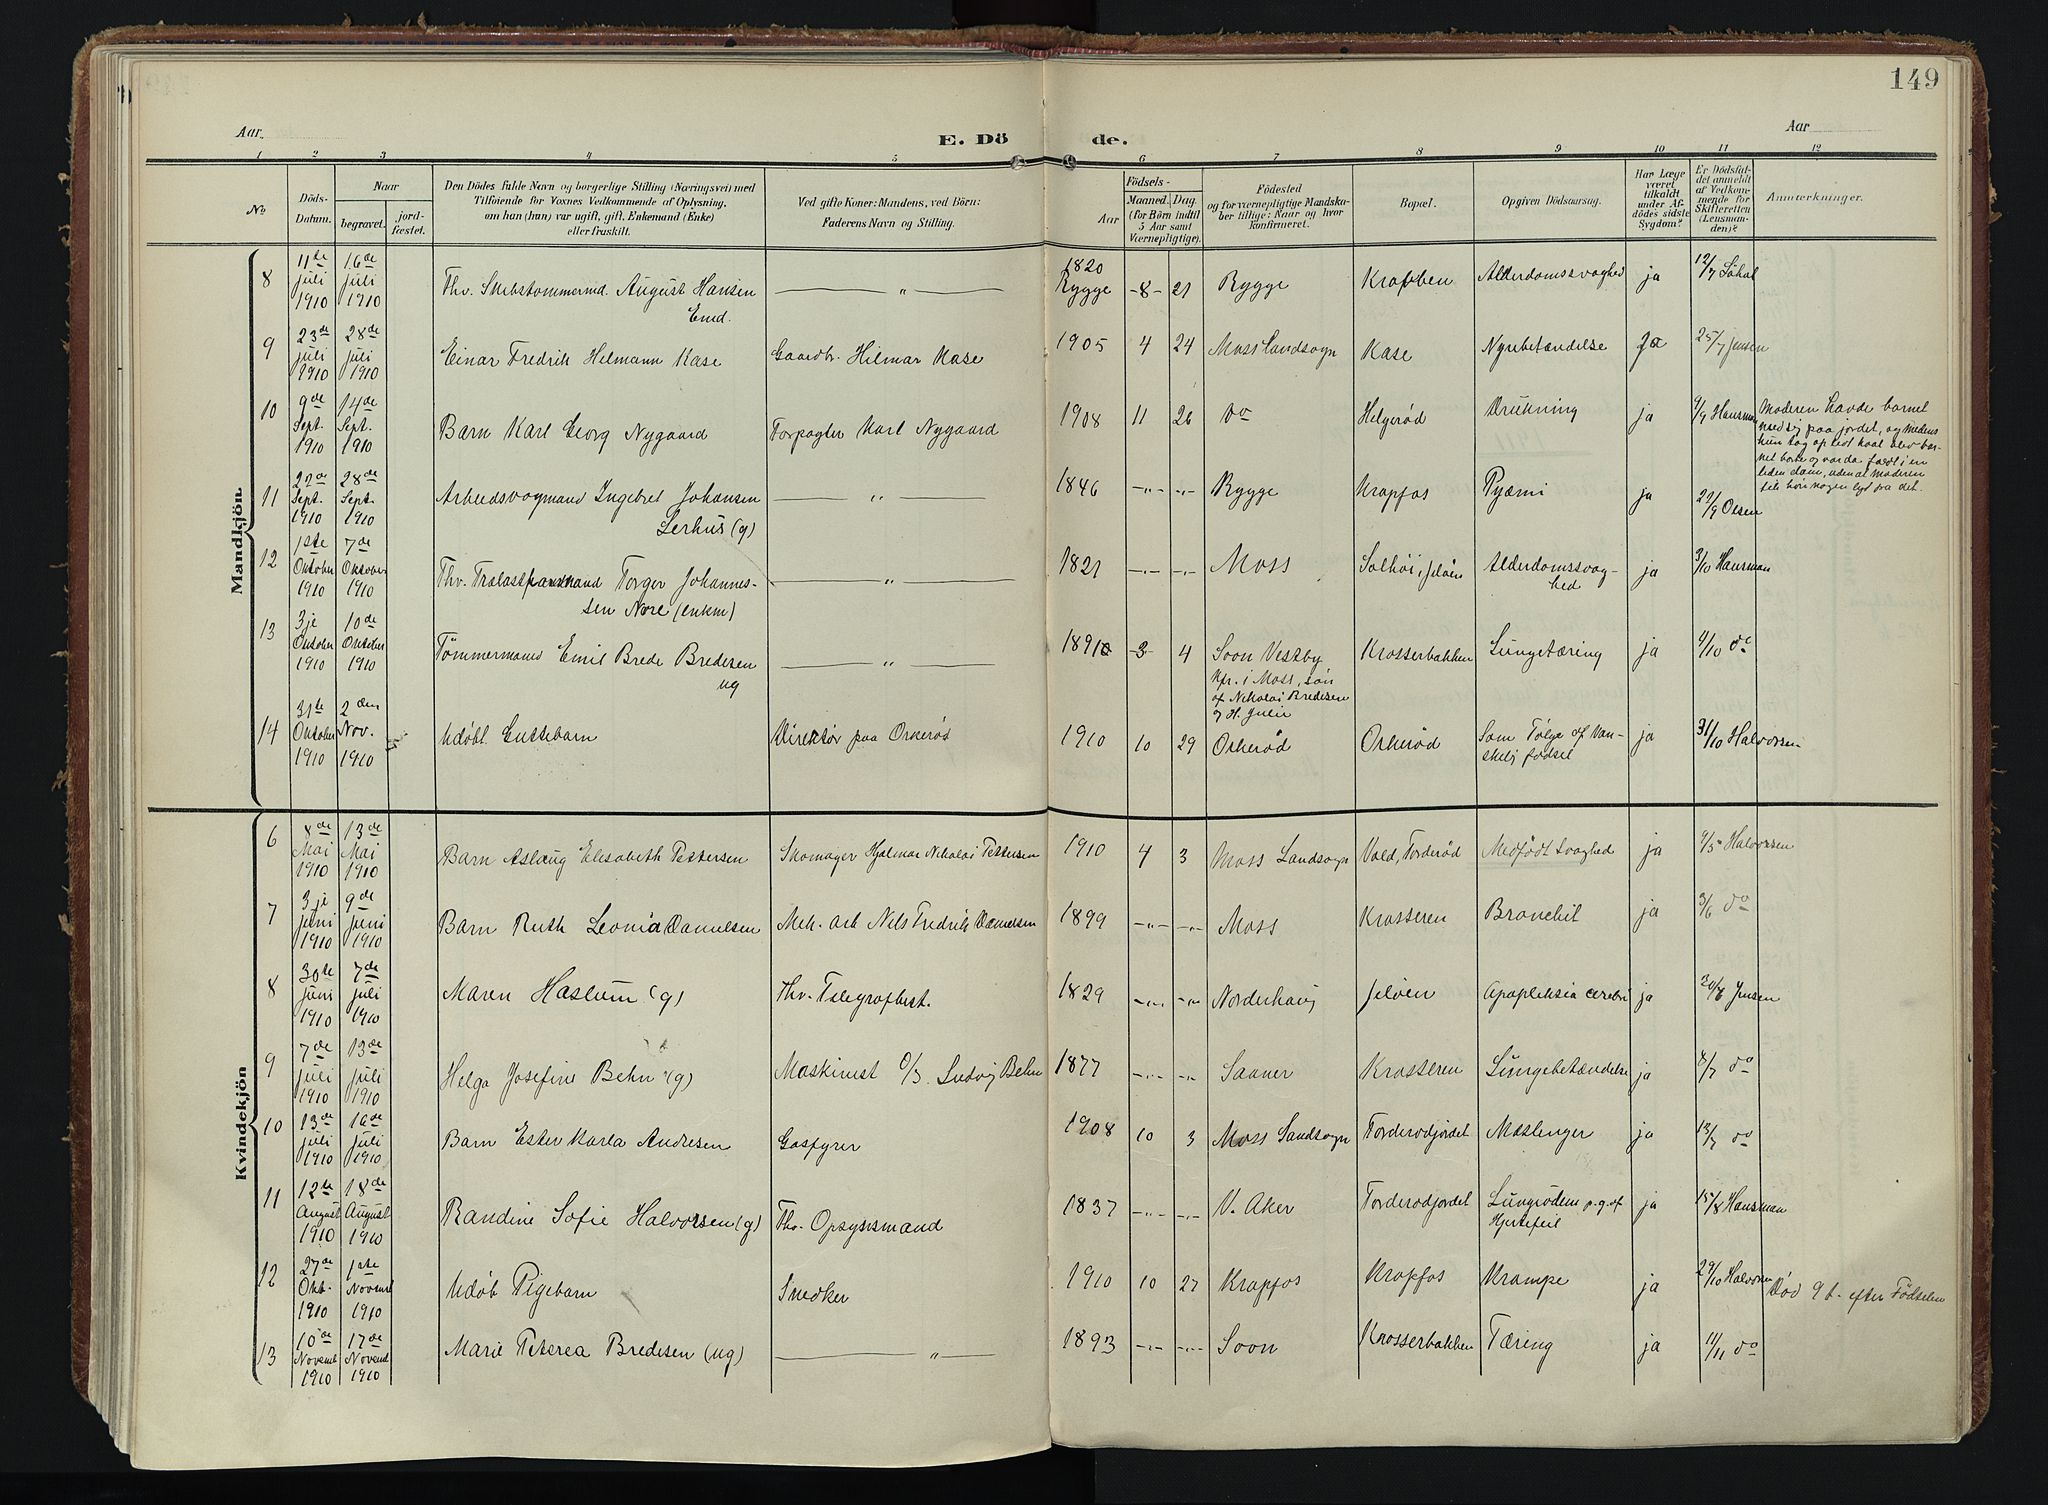 149
Aar
E. Dö de.
Aar
1 2 3 4 5 6 7 8 9 10 11 12
No
Döds-Datum.
Naar
begravet.
jord-fæstet.
Den Dödes fulde Navn og borgerlige Stilling (Næringsvei) med
Tilföiende for Voxnes Vedkommende af Oplysning,
om han (hun) var ugift, gift, Enkemand (Enke)
eller fraskilt.
Ved gifte Koner: Mandens, ved Börn:
Faderens Navn og Stilling.
Födsels-
Aar
Maaned. Dag
(for Börn indtil
5 Aar samt
Værnepligtige).
Födested
og for værnepligtige Mandska-
ber tillige: Naar og hvor
konfirmeret.
Bopæl.
Opgiven Dödsaarsag.
Har Læge
været
tilkaldt
under Af-
dödes sidste
Sygdom?
Er Dödsfal-
det anmeldt
af Vedkom-
mende for
Skifteretten
(Lensman-
den)?
Anmærkninger.
Mandkjön.
8 11te juli 1910 16de juli 1910 Thv. Skibstømmermd. August Hansen Emd. — „ — 1820 Rygge -8- 21 Rygge Krapben Alderdomssvaghed ja 12/7 Löhol
9 23de juli 1910 28de juli 1910 Einar Fredrik Helmann Kase Gaardbr. Hilmar Kase 1905 4 24 Moss landsogn Kase Nyrebetændelse ja 25/7 Jensen
10 9de Sept. 1910 14de Sept. 1910 Barn Karl Georg Nygaard Forpagter Karl Nygaard 1908 11 26 do Helgerød Drukning ja 9/9 Hansman
Moderen havde barnet
med sig paa jordet, og medens
hun tog op lidt kaal blev bar-
net borte og var da faldt i en
liden dam, uden at moderen
fik höre nogen lyd fra det.
11 22de Sept. 1910 28de Sept. 1910 Arbeidsvogmand Ingebret Johansen Lerhus (g) — „ — 1846 -„- -„- Rygge Krapfos Pyæmi ja 29/9 Olsen
12 1ste Oktober 1910 7de Oktober 1910 Thv. Trælasthandtand Torger Johannes-sen Nore (enkm) — „ — 1821 -„- -„- Moss Solhöi, Jelöen Alderdomssvag-hed ja 3/10 Hansman
13 3je Oktober 1910 10de Oktober 1910 Tömmermand Emil Brede Bredesen ug — „ — 1891 -3- 4 Soon Vestby
Kfr. i Moss, søn
af Nikolai Bredesen
og H. Julie
Krosserbakken Lungetæring ja 4/10 do
14 31te Oktober 1910 2den Nov. 1910 Udöbt Guttebarn Direktör paa Orkerød 1910 10 29 Orkerød Orkerød Som Følge af Van-skelig födsel ja 31/10 Halvorsen
Kvindekjön
6 8de Mai 1910 13de Mai 1910 Barn Aslaug Elisabeth Pettersen Skomager Hjalmar Nikolai Pettersen 1910 4 3 Moss Landsogn Vold, Torderød Medfödt Svaghed ja 9/5 Halvorsen
7 3je juni 1910 9de juni 1910 Barn Ruth Leonia Danielsen Mek. arb Nils Fredrik Danielsen 1899 -„- -„- Moss Krosseren Bronchit ja 3/6 do
8 30te juni 1910 7de juli 1910 Maren Haslum (g) Thv. Telegrafbest. 1829 -„- -„- Norderhaug Jelöen Apopleksia cerebri ja 30/6 Jensen
9 7de juli 1910 13de juli 1910 Helga Josefine Behn (g) Maskinist O/S. Ludvig Behn 1877 -„- -„- Saaner Krosseren Lungebetændelse ja 8/7 do
10 13de juli 1910 16de juli 1910 Barn Ester Karla Andresen Gasfyrer 1908 10 3 Moss Landsogn Torderødjordet Mæslinger ja 13/7 do
11 12te August 1910 18de August 1910 Randine Sofie Halvorsen (g) Thv. Opsynsmand 1837 -„- -„- V. Aker Torderødjordet Lungeödem p.g.af Hjertefeil ja 15/8 Hansman
12 27de Okt. 1910 1ste Novemb 1910 Udöb Pigebarn Snedker 1910 10 27 Krapfos Krapfos Krampe ja 29/10 Halvorsen Död 9 t. efter Födselen
13 10de Novemb 1910 17de Novemb 1910 Marie Peterea Bredesen (ug) — „ — 1893 -„- -„- Soon Krosserbakken Tæring ja 11/11 do